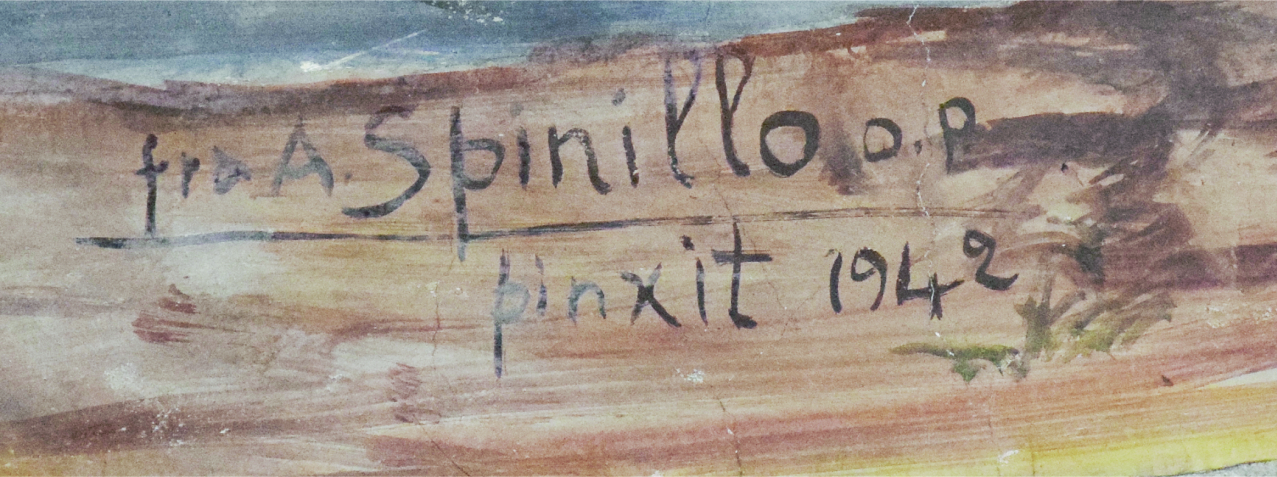 fra A. Spinillo o.p
pinxit 1942